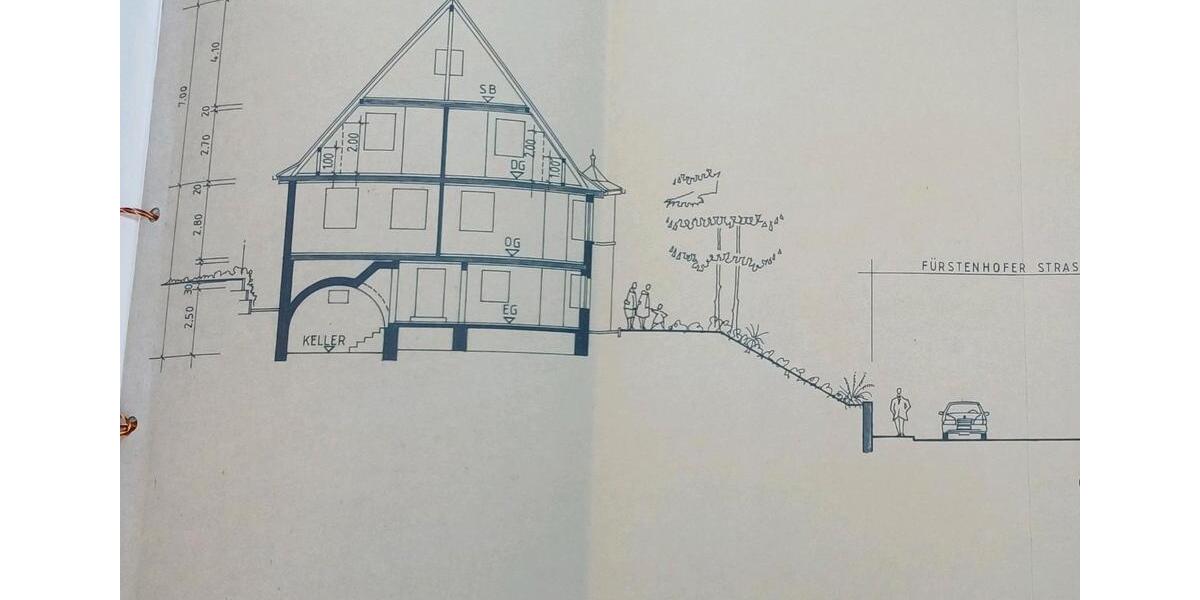 4.10
7.00
20
2.70
20
2.80
30
2.50
SB
1.00
2.00
DG
2.00
1.00
OG
EG
KELLER
FÜRSTENHOFER STRAS